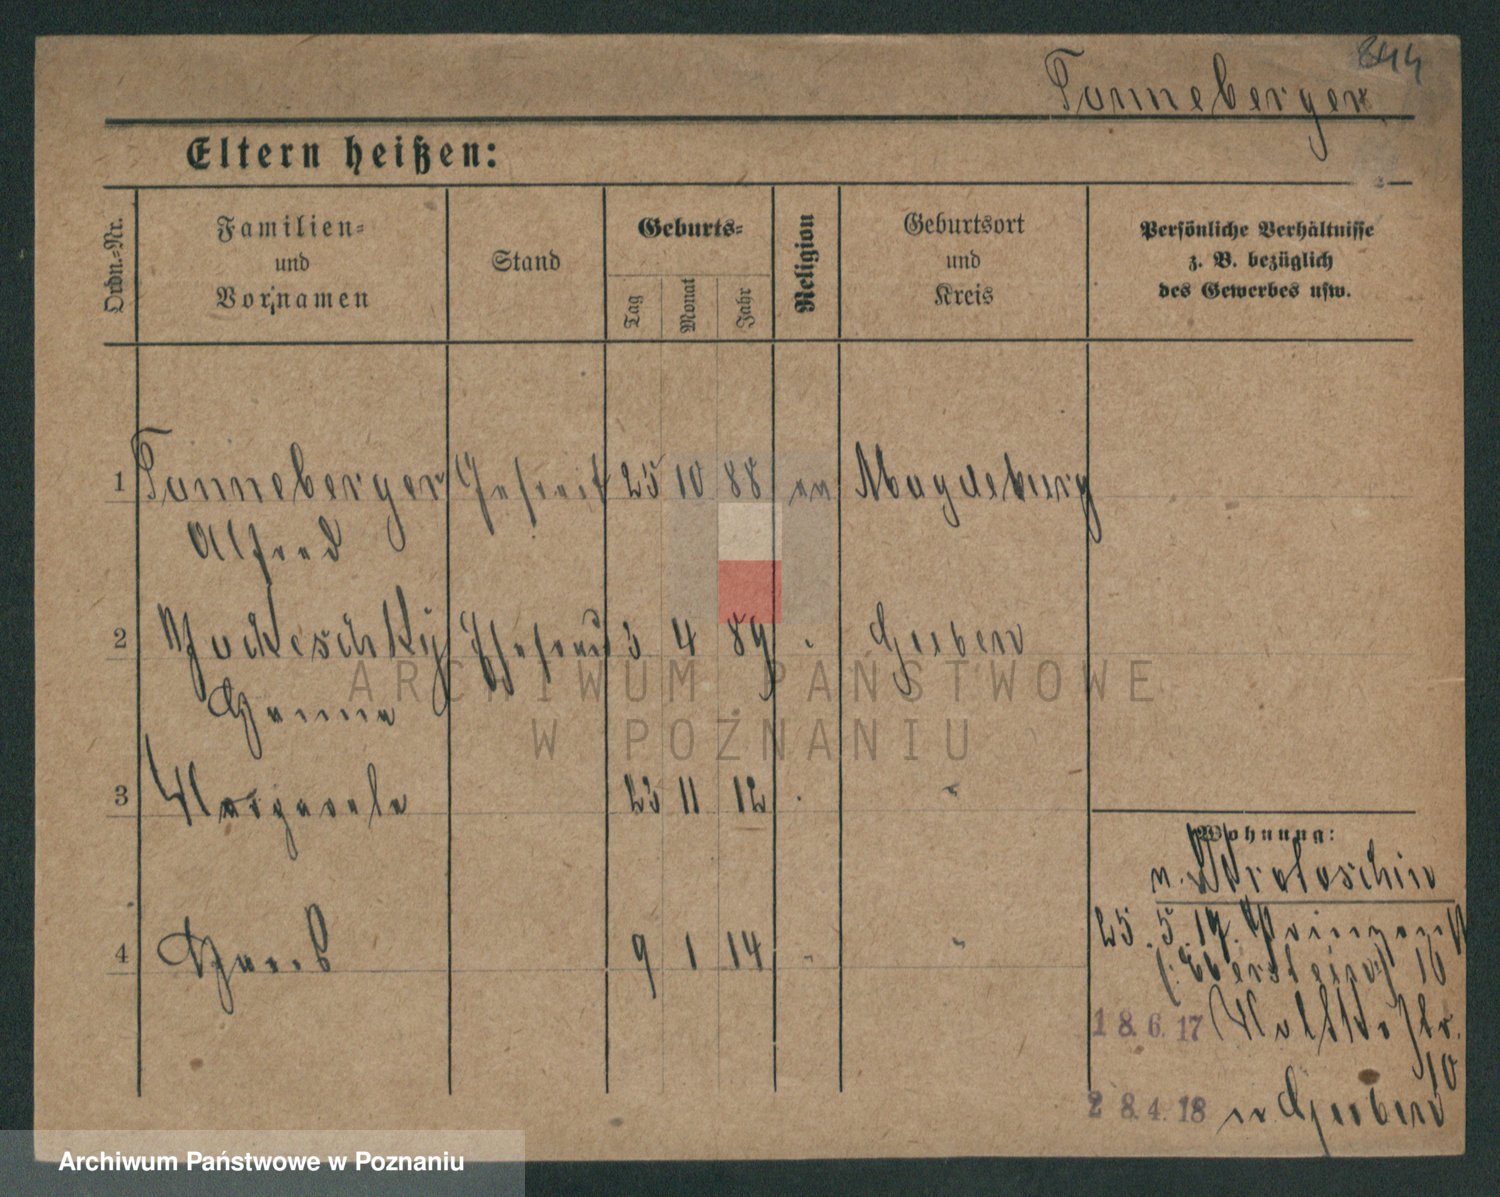 844
Tonneberger
Eltern heißen:
Ordn.-Nr.
Familien-
und
Vornamen
Stand
Geburts-
Tag
Monat
Jahr
Religion
Geburtsort
und
Kreis
Persönliche Verhältnisse
z. B. bezüglich
des Gewerbes usw.
1 Tonneberger Gefreit 25 10 88 ev Magdeburg
Alfred
2 Ehefrau 3 4 89 " Guben
3 Margarete 23 11 12 " "
4 9 1 14 " "
Wohnung:
n. Krotoschin
25.5.17.
(: Eberstein:) 10
18.6.17 Moltkestr.
10
28.4.18 n. Guben
ARCHIWUM PAŃSTWOWE
W POZNANIU
Archiwum Państwowe w Poznaniu